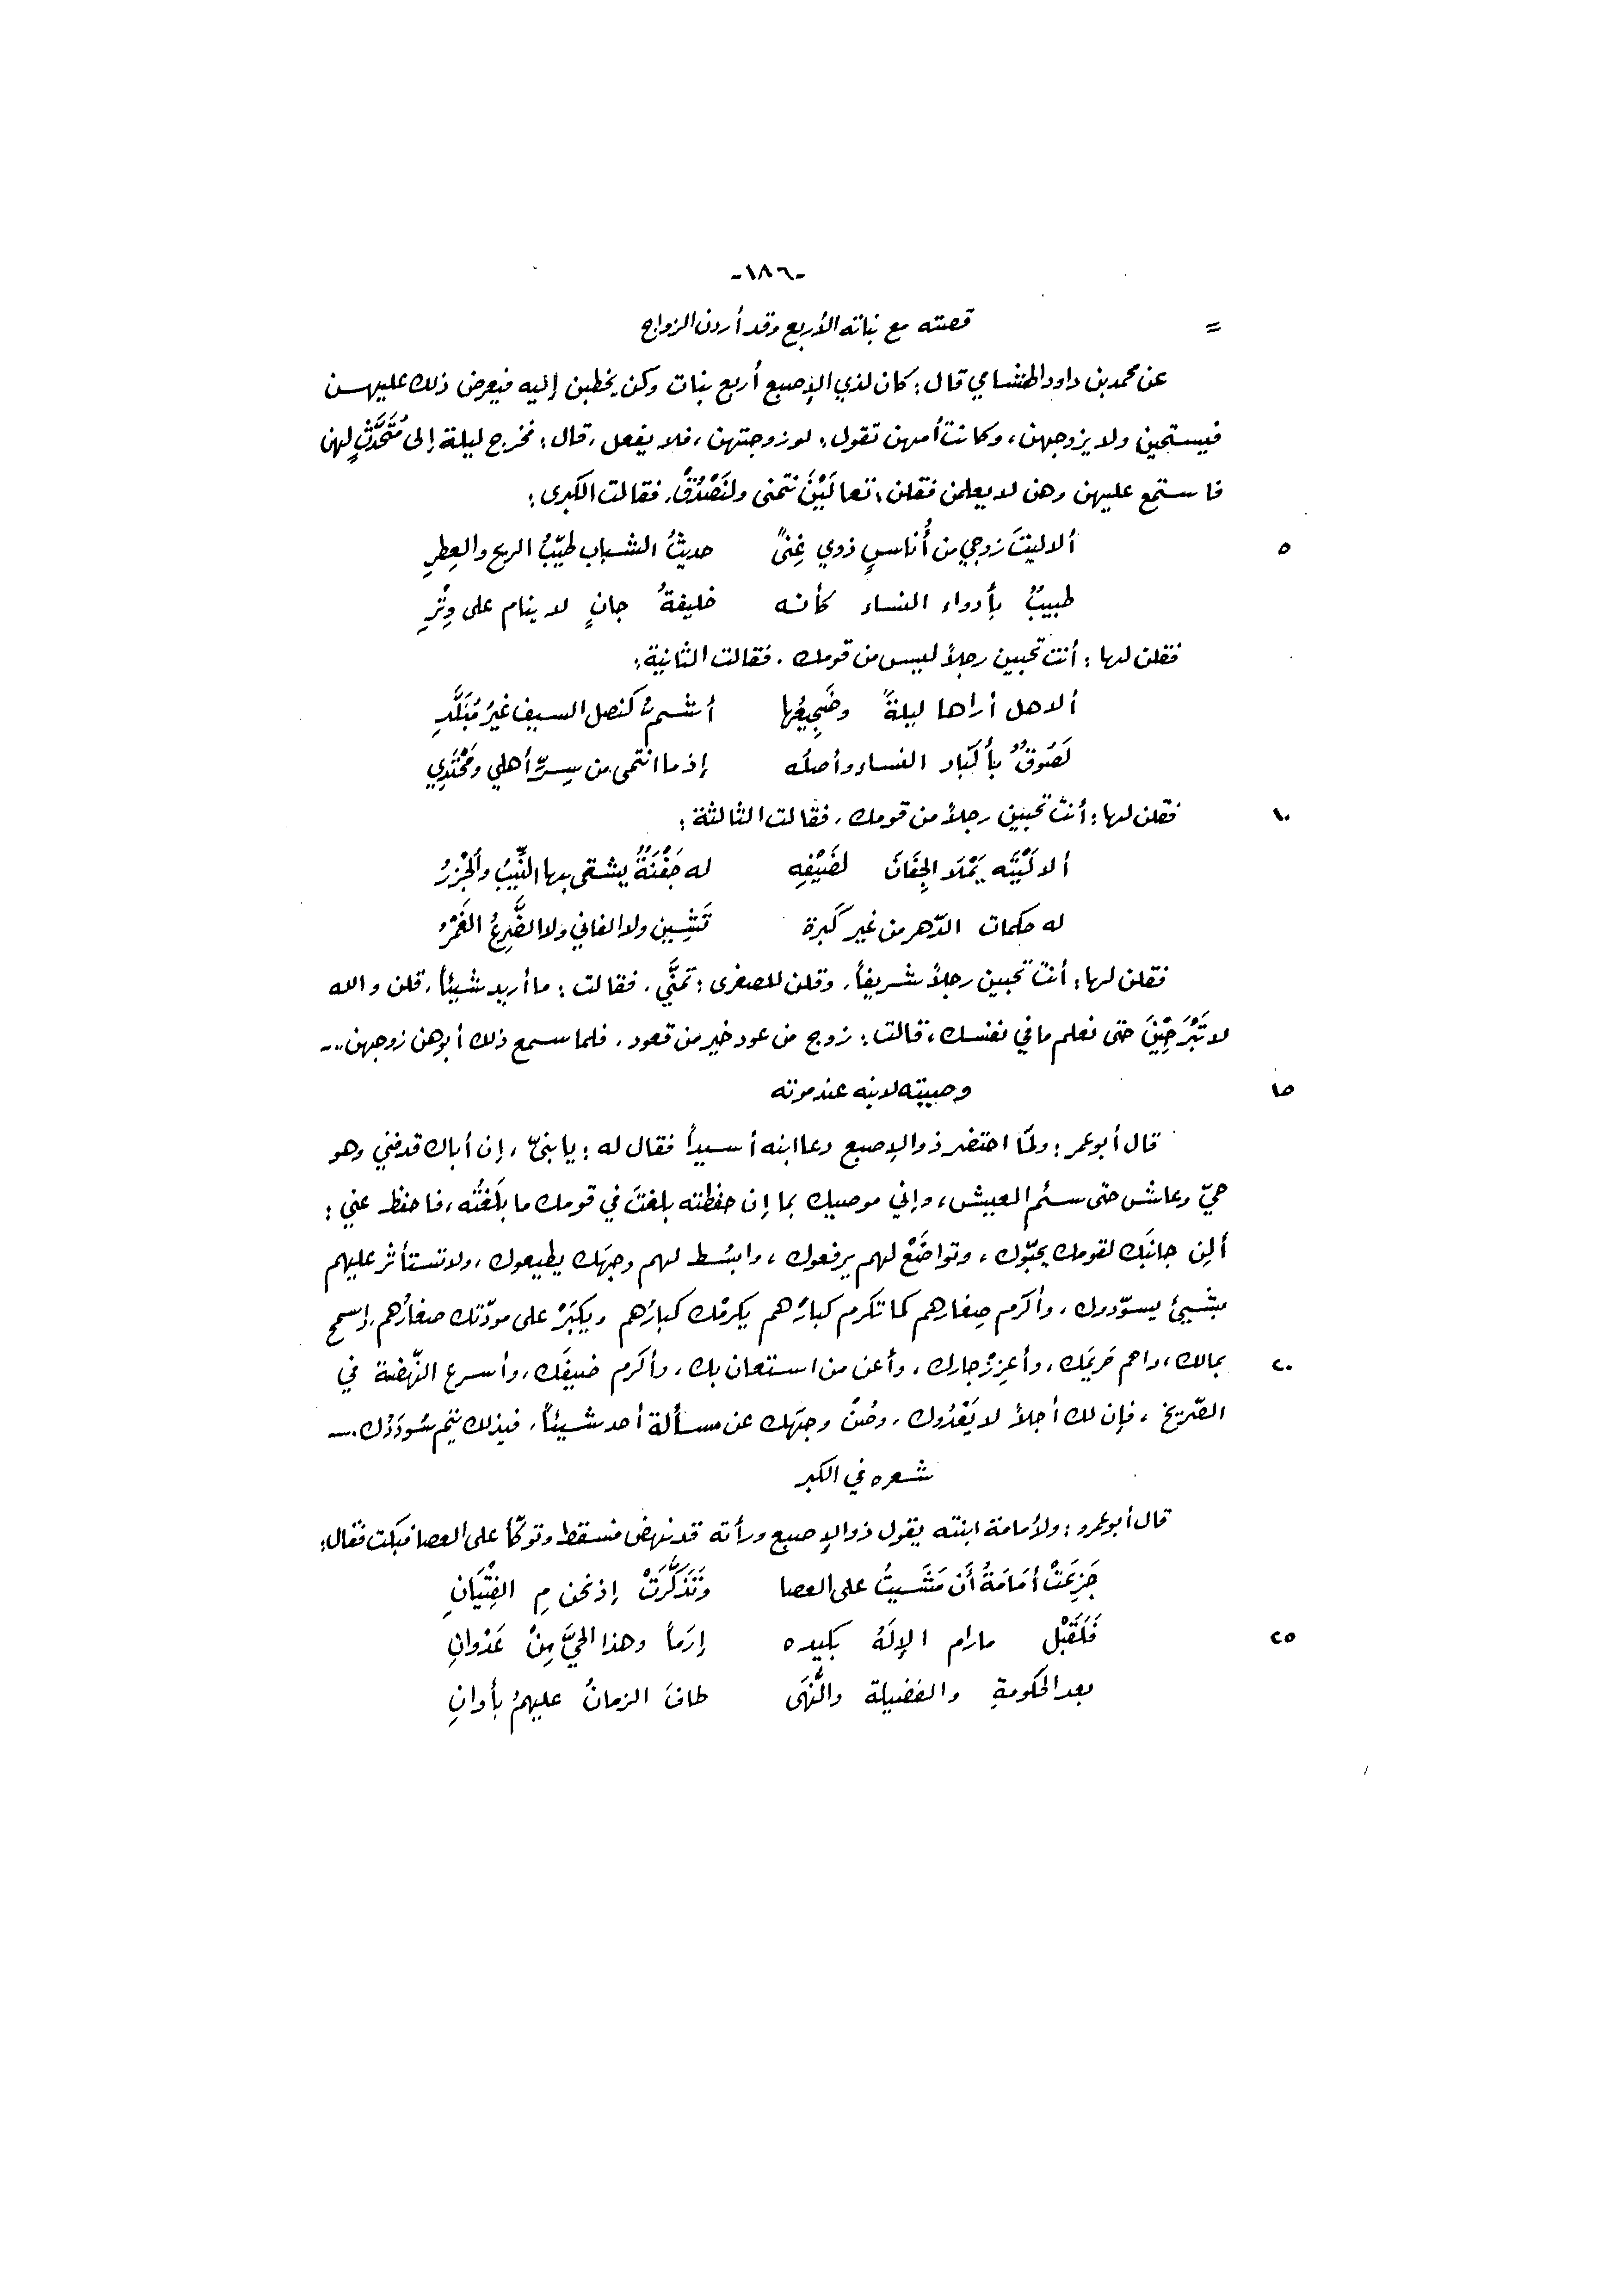 -١٨٦-
= قصته مع بناته الأربع وقد أردن الزواج
عن محمد بن داود الهشامي قال: كان لذي الإصبع أربع بنات وكن يخطبن إليه فيعرض ذلك عليهن
فيستحين ولا يزوجهن، وكانت أمهن تقول: لو زوجتهن، فلا يفعل، قال: فخرج ليلة إلى مُتَحَدَّثٍ لهن
فاستمع عليهن وهن لا يعلمن فقلن: تعالَيْنَ نتمنى ولنَصْدُقْ، فقالت الكبرى:
٥ ألا ليتَ زوجي من أُناسٍ ذوي غِنىً حديثُ الشباب طيّبُ الريح والعِطرِ
طبيبٌ بأدواء النساء كأنه خليفةُ جانٍ لا ينام على وِتْرِ
فقلن لها: أنت تحبين رجلاً ليس من قومك. فقالت الثانية:
ألا هل أراها ليلةً وضَجِيعُها أشمُّ كنصل السيف غيرُ مُبَلَّدِ
لَصُوقٌ بأكْبَاد النساء وأصلُه إذ ما انتمى من سِرّ أهلي ومَحْتَدِي
١٠ فقلن لها: أنت تحبين رجلاً من قومك، فقالت الثالثة:
ألا لَيْتَه يَمْلَا الجِفَانَ لضَيْفِه له جَفْنَةٌ يشقى بها النِّيبُ والجُزْرُ
له حكمات الدّهر من غير كَبرة تَشِين ولا الفاني ولا الضَّرِعُ الغَمْرُ
فقلن لها: أنت تحبين رجلاً شريفاً. وقلن للصغرى: تمنَّي. فقالت: ما أريد شيئاً، قلن والله
لا تَبْرَحِينَ حتى نعلم ما في نفسك، قالت: زوج من عود خير من قعود. فلما سمع ذلك أبوهن زوجهن..
١٥ وصيته لابنه عند موته
قال أبو عمر: ولمّا احتضر ذو الإصبع دعا ابنه أسيداً فقال له: يا بنيّ، إن أباك قد فني وهو
حيّ وعاش حتى سئم العيش، وإني موصيك بما إن حفظته بلغتَ في قومك ما بلَغتُه، فاحفظ عني:
ألِن جانبَك لقومك يحبّوك، وتواضَعْ لهم يرفعوك، وابسُط لهم وجهَك يطيعوك، ولا تستأثر عليهم
بشيئ يسوّدوك، وأكرم صِغارهم كما تكرم كبارَهم يكرمْك كبارُهم ويكبَرْ على مودّتك صغارُهم، اسمح
٢٠ بمالك، واحم حَريمَك، وأعزِزْ جارك، وأعن من استعان بك، وأكرم ضيفَك، وأسرع النّهضة في
الصّريخ، فإن لك أجلاً لا يَعْدُوك، وصُنْ وجهَك عن مسألة أحد شيئاً، فبذلك يتم سُودَدُك...
شعره في الكبر
قال أبو عمرو: ولأمامة ابنته يقول ذو الإصبع ورأته قد نهض فسقط وتوكّأ على العصا فبكت فقال:
جَزِعَتْ أمَامَةُ أن مَشَيتُ على العصا وَتَذَكَّرَتْ إذ نحن مِ الفِتْيَانِ
٢٥ فَلَقَبْلَ ما رام الإلَهُ بكيده إرَماً وهذا الحيَّ مِنْ عَدْوانِ
بعد الحكومةِ والفضيلة والنُّهَى طافَ الزمانُ عليهمُ بأوانِ